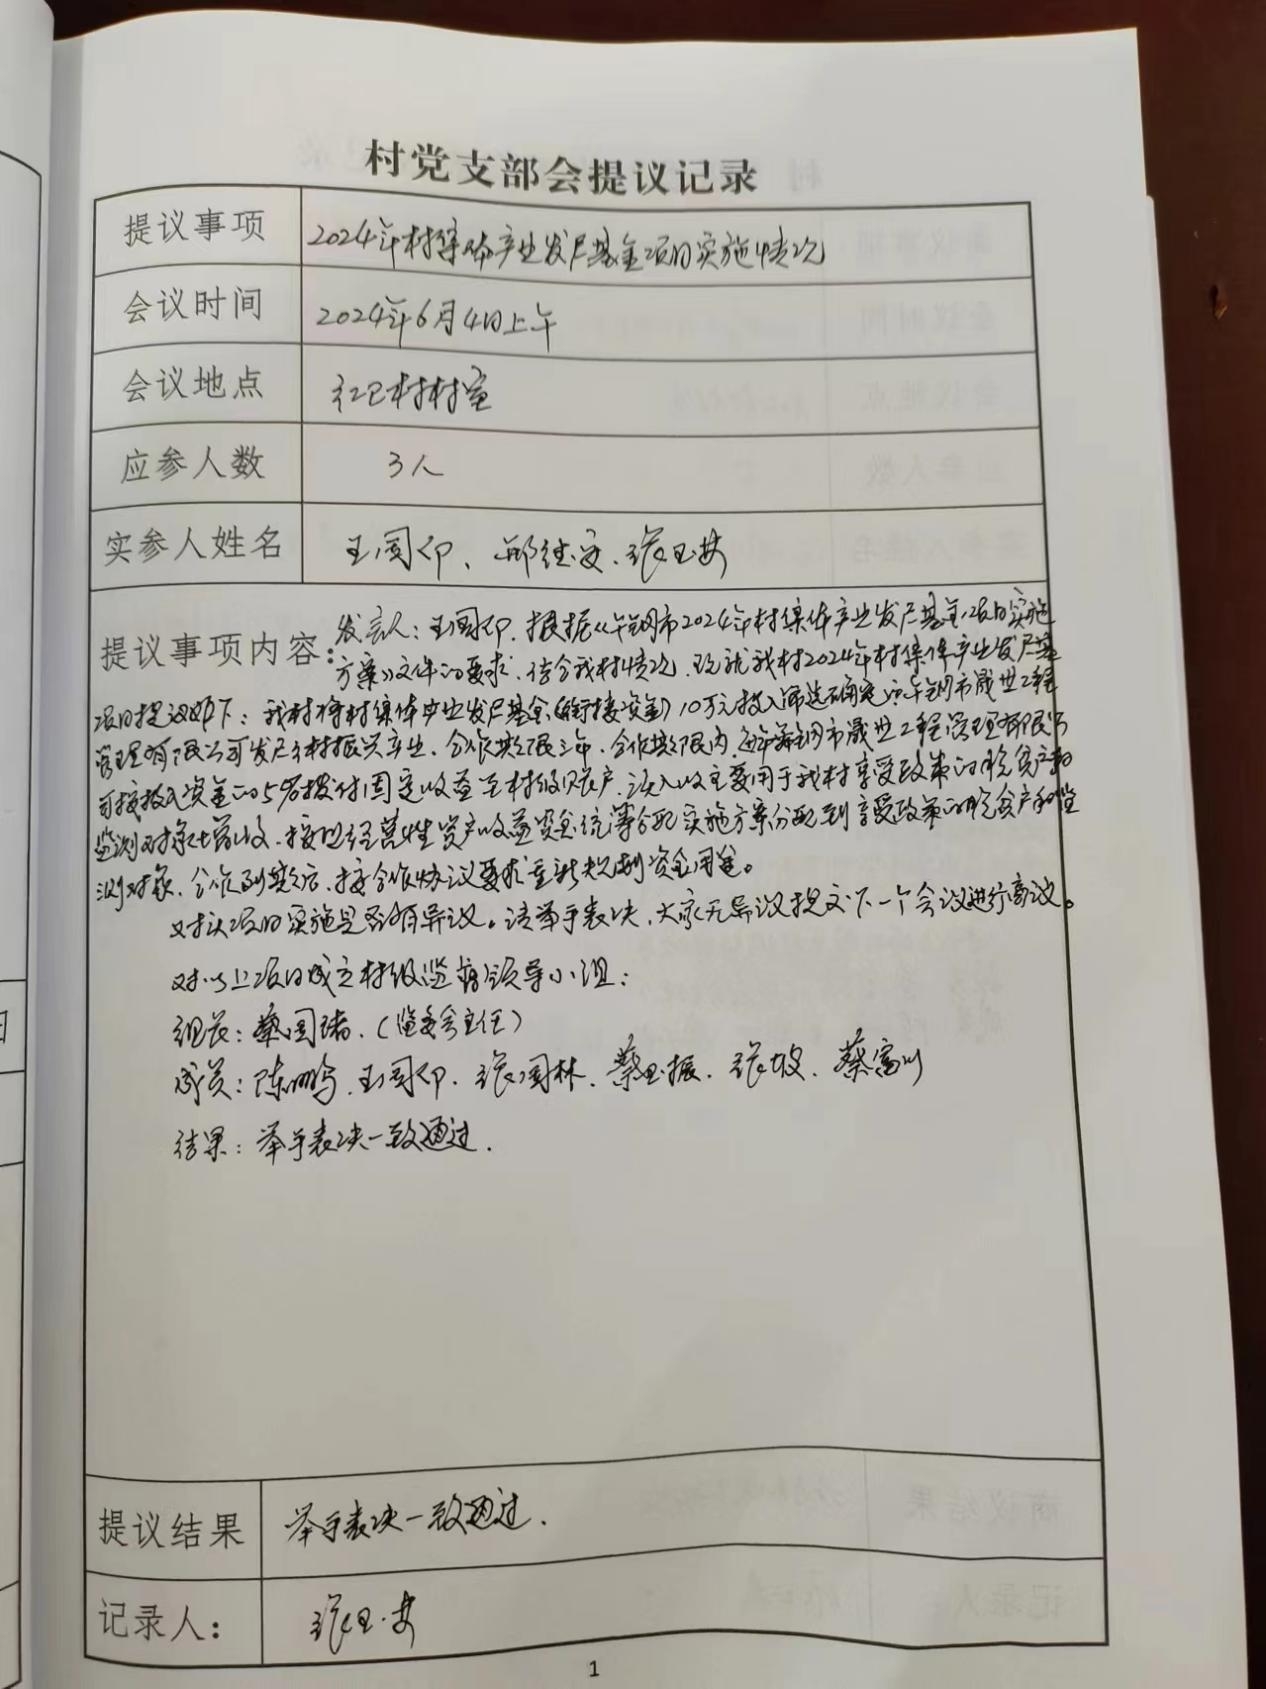 村党支部会提议记录
提议事项 2024年村集体产业发展基金项目实施情况
会议时间 2024年6月4日上午
会议地点 红卫村村室
应参人数 3人
实参人姓名 王国印、郑德安、张玉安
提议事项内容: 发言人:王国印.根据《舞钢市2024年村集体产业发展基金项目实施
方案》文件的要求,结合我村情况,现就我村2024年村集体产业发展基
项目提议如下:我村将村集体产业发展基金(衔接资金)10万元投入筛选确定的舞钢市晟世工程
管理有限公司发展乡村振兴产业,合作期限三年,合作期限内,每年舞钢市晟世工程管理有限公
司按投入资金的5%拨付固定收益至村级账户,该收入主要用于我村享受政策的脱贫户和
监测对象增收,按照经营性资产收益资金统筹分配实施方案分配到享受政策的脱贫户和监
测对象,合作到期后,按合作协议要求重新规划资金用途。
对该项目的实施是否有异议。请举手表决,大家无异议提交下一个会议进行商议。
对以上项目成立村级监督领导小组:
组长:蔡国 (监委会主任)
成员:陈鹏、王国印、张国林、蔡玉振、张坡、蔡富川
结果:举手表决一致通过.
提议结果 举手表决一致通过.
记录人: 张玉安
1